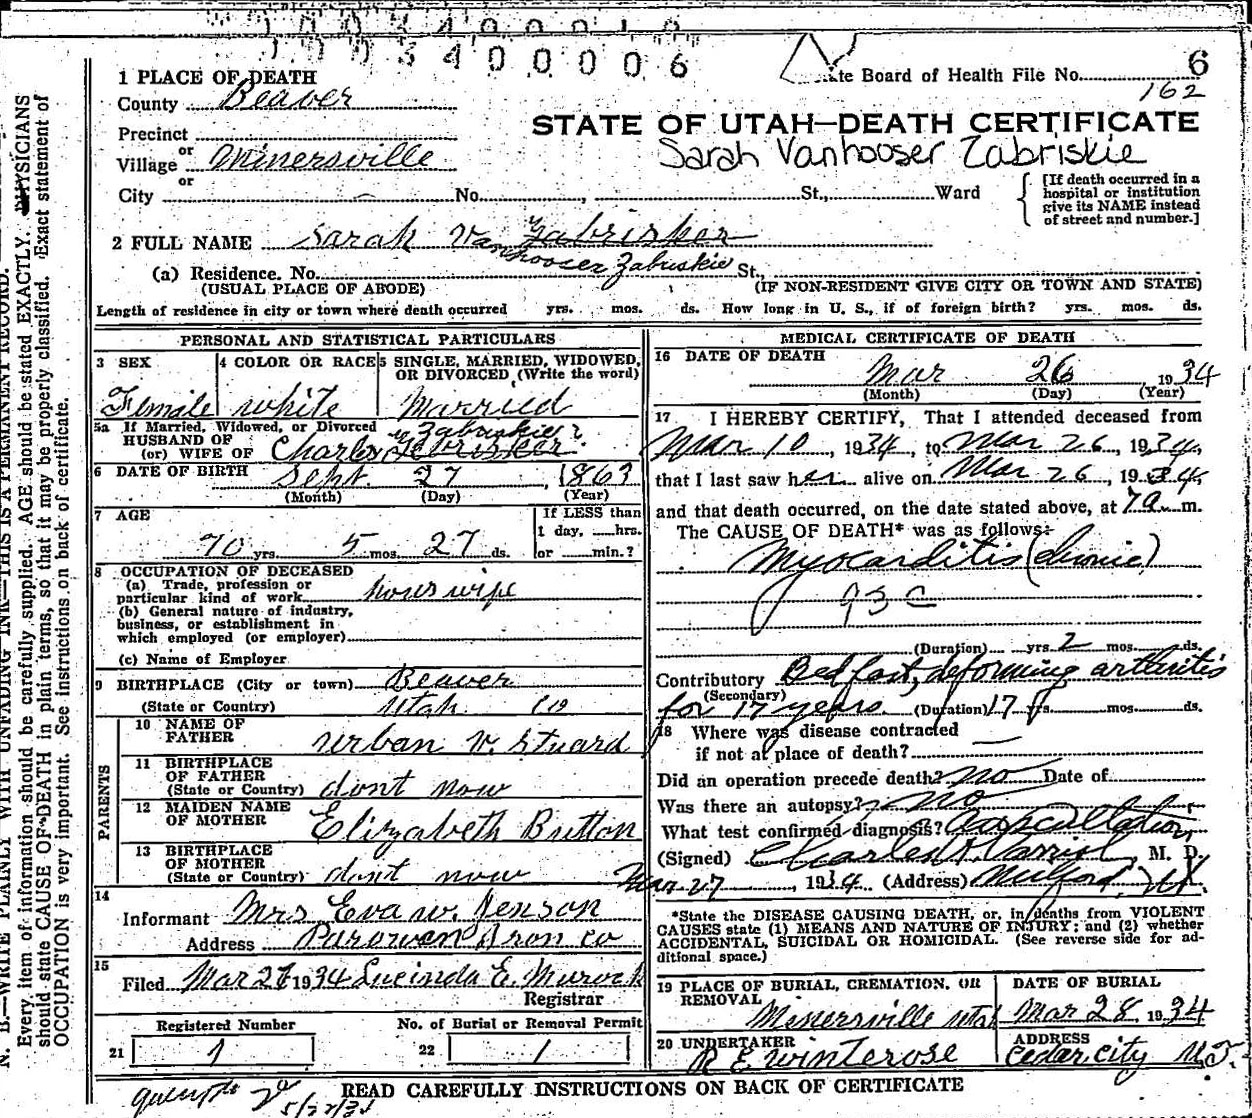 1 0 0 3 4 0 0 0 1 0
1 0 0 3 4 0 0 0 0 6
1 PLACE OF DEATH
te Board of Health File No. 6
162
County Beaver
Precinct
or
Village Minersville
or
City No. , St., Ward
STATE OF UTAH—DEATH CERTIFICATE
Sarah Vanhooser Zabriskie
[If death occurred in a
hospital or institution
give its NAME instead
of street and number.]
2 FULL NAME Sarah Van Zabrisker
hooser Zabriskie
(a) Residence. No. St.,
(USUAL PLACE OF ABODE) (IF NON-RESIDENT GIVE CITY OR TOWN AND STATE)
Length of residence in city or town where death occurred yrs. mos. ds. How long in U. S., if of foreign birth? yrs. mos. ds.
PERSONAL AND STATISTICAL PARTICULARS
3 SEX
Female
4 COLOR OR RACE
white
5 SINGLE, MARRIED, WIDOWED,
OR DIVORCED (Write the word)
Married
5a If Married, Widowed, or Divorced
HUSBAND OF
(or) WIFE OF Charles Zebrisker
Zabriskie?
6 DATE OF BIRTH Sept. 27, 1863
(Month) (Day) (Year)
7 AGE
70 yrs. 5 mos. 27 ds.
If LESS than
1 day, hrs.
or min.?
8 OCCUPATION OF DECEASED
(a) Trade, profession or
particular kind of work houswife
(b) General nature of industry,
business, or establishment in
which employed (or employer)
(c) Name of Employer
9 BIRTHPLACE (City or town) Beaver
(State or Country) Utah Co
PARENTS
10 NAME OF
FATHER urban v. Stuard
11 BIRTHPLACE
OF FATHER
(State or Country) dont now
12 MAIDEN NAME
OF MOTHER Elizabeth Britton
13 BIRTHPLACE
OF MOTHER
(State or Country) dont now
14
Informant Mrs Eva w. Jenson
Address Parowen Iron Co
15
Filed Mar 27 1934 Lucinda E. Murock
Registrar
Registered Number
21 1
No. of Burial or Removal Permit
22 1
MEDICAL CERTIFICATE OF DEATH
16 DATE OF DEATH
Mar 26 1934
(Month) (Day) (Year)
17 I HEREBY CERTIFY, That I attended deceased from
Mar 10, 1934, to Mar 26, 1934,
that I last saw her alive on Mar 26, 1934,
and that death occurred, on the date stated above, at 7 a. m.
The CAUSE OF DEATH* was as follows:
Myocarditis (chronic)
93c
(Duration) yrs. 2 mos. ds.
Contributory Bedfast, deforming arthritis
(Secondary)
for 17 years. (Duration) 17 yrs. mos. ds.
18 Where was disease contracted
if not at place of death?
Did an operation precede death? no Date of
Was there an autopsy? no
What test confirmed diagnosis? Auscultation
(Signed) Charles, M. D.
Mar 27, 1934 (Address) Milford, Ut.
*State the DISEASE CAUSING DEATH, or, in deaths from VIOLENT
CAUSES state (1) MEANS AND NATURE OF INJURY; and (2) whether
ACCIDENTAL, SUICIDAL OR HOMICIDAL. (See reverse side for ad-
ditional space.)
19 PLACE OF BURIAL, CREMATION, OR
REMOVAL
Minersville Utah
DATE OF BURIAL
Mar 28 1934
20 UNDERTAKER
R E. Winterose
ADDRESS
Cedar city U.T.
READ CAREFULLY INSTRUCTIONS ON BACK OF CERTIFICATE
N. B.—WRITE PLAINLY WITH UNFADING INK—THIS IS A PERMANENT RECORD.
Every item of information should be carefully supplied. AGE should be stated EXACTLY. PHYSICIANS
should state CAUSE OF DEATH in plain terms, so that it may be properly classified. Exact statement of
OCCUPATION is very important. See instructions on back of certificate.